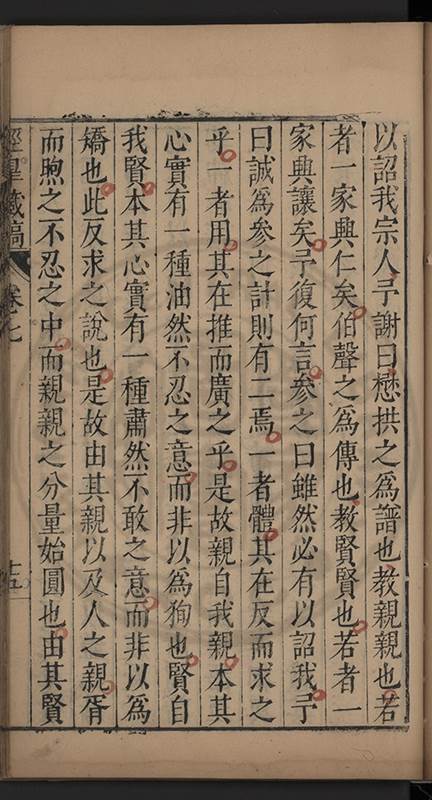 以詔我宗人予謝曰懋拱之為譜也教親親也若
者一家興仁矣伯聲之為傳也教賢賢也若者一
家興讓矣予復何言參之曰雖然必有以詔我予
曰誠為參之計則有二焉一者體其在反而求之
乎一者用其在推而廣之乎是故親自我親本其
心實有一種油然不忍之意而非以為狥也賢自
我賢本其心實有一種肅然不敢之意而非以為
矯也此反求之說也是故由其親以及人之親胥
而煦之不忍之中而親親之分量始圓也由其賢
經皐藏稿
卷七
十五